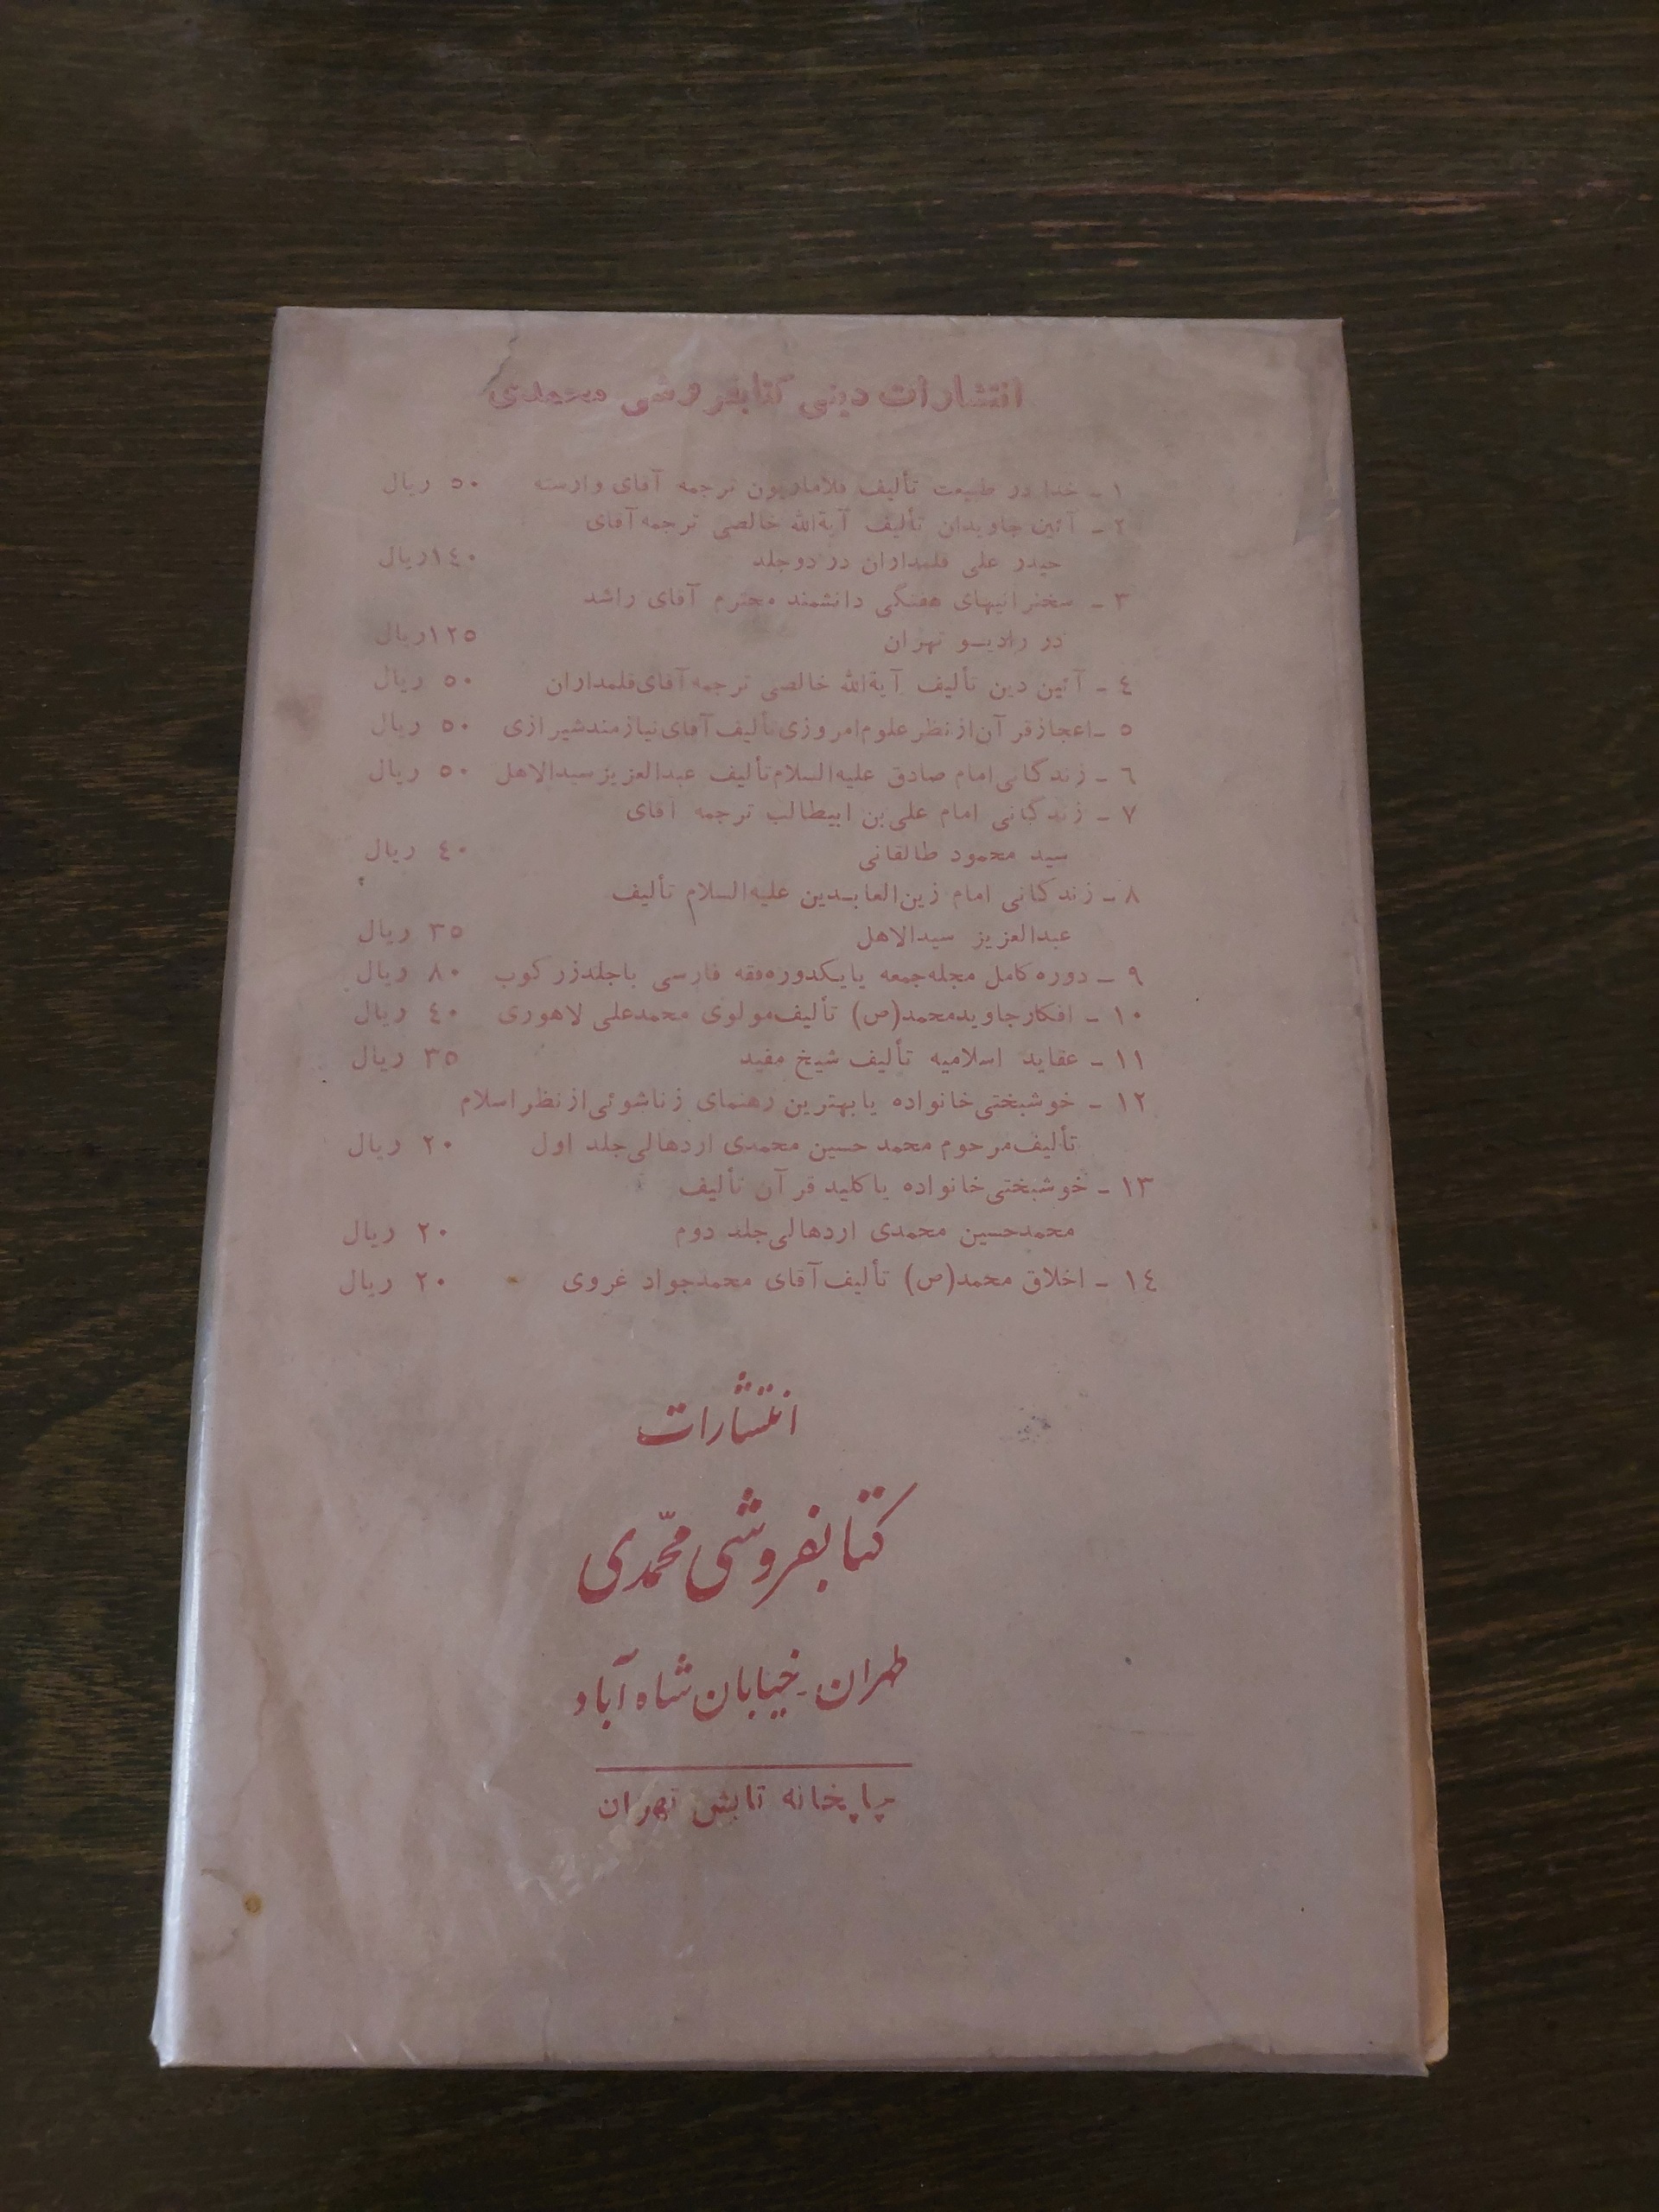 انتشارات دینی کتابفروشی محمدی
۱ - خدا در طبیعت تألیف فلاماریون ترجمه آقای وارسته ۵۰ ریال
۲ - آئین جاویدان تألیف آیةالله خالصی ترجمه آقای
حیدر علی قلمداران در دو جلد ۱٤۰ ریال
۳ - سخنرانیهای هفتگی دانشمند محترم آقای راشد
در رادیو تهران ۱۲۵ ریال
٤ - آئین دین تألیف آیةالله خالصی ترجمه آقای قلمداران ۵۰ ریال
۵ - اعجاز قرآن از نظر علوم امروزی تألیف آقای نیازمند شیرازی ۵۰ ریال
٦ - زندگانی امام صادق علیه السلام تألیف عبدالعزیز سیدالاهل ۵۰ ریال
۷ - زندگانی امام علی بن ابیطالب ترجمه آقای
سید محمود طالقانی ٤۰ ریال
۸ - زندگانی امام زین العابدین علیه السلام تألیف
عبدالعزیز سیدالاهل ۳۵ ریال
۹ - دوره کامل مجله جمعه یا یکدوره فقه فارسی با جلد زرکوب ۸۰ ریال
۱۰ - افکار جاوید محمد(ص) تألیف مولوی محمدعلی لاهوری ٤۰ ریال
۱۱ - عقاید اسلامیه تألیف شیخ مفید ۳۵ ریال
۱۲ - خوشبختی خانواده یا بهترین رهنمای زناشوئی از نظر اسلام
تألیف مرحوم محمد حسین محمدی اردهالی جلد اول ۲۰ ریال
۱۳ - خوشبختی خانواده یا کلید قرآن تألیف
محمد حسین محمدی اردهالی جلد دوم ۲۰ ریال
۱٤ - اخلاق محمد(ص) تألیف آقای محمد جواد غروی ۲۰ ریال
انتشارات
کتابفروشی محمّدی
طهران - خیابان شاه آباد
چاپخانه تابش تهران